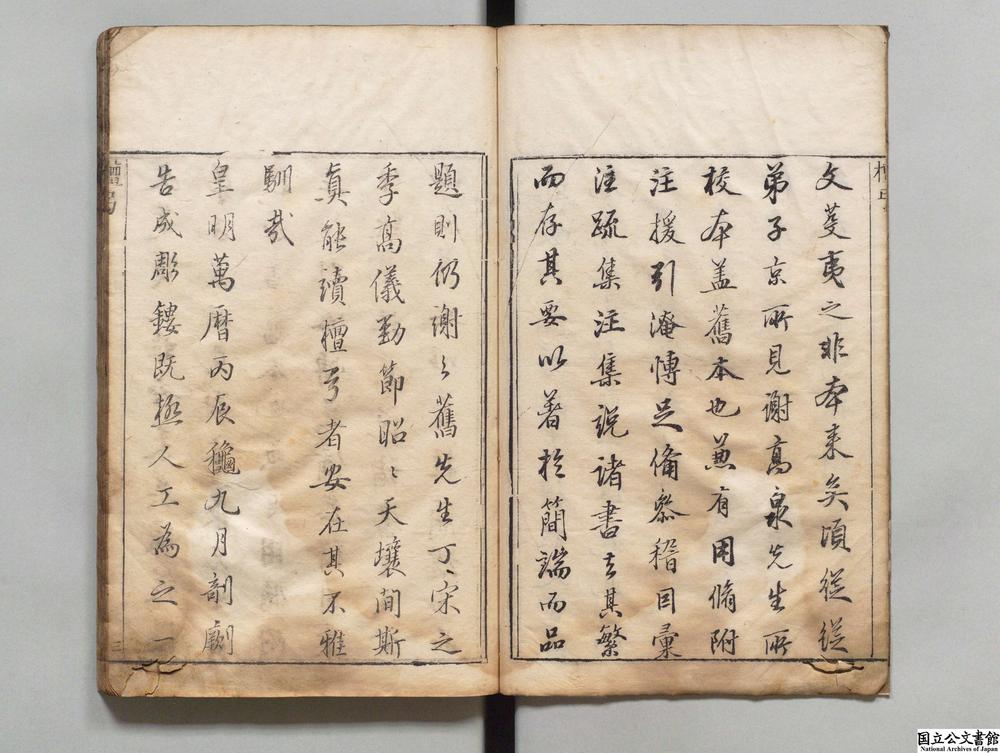 文芟夷之非本来矣頃従従
弟子京所見謝高泉先生所
校本盖舊本也兼有用脩附
注援引淹愽足備叅稽因彙
注疏集注集説諸書去其繁
而存其要以著於簡端而品
題則仍謝之舊先生丁丁宋之
季髙儀勁節昭昭天壤间斯
真能續檀弓者安在其不雅
馴哉
皇明萬曆丙辰龝九月剞劂
告成彫鏤既極人工為之一
檀弓
三
国立公文書館
National Archives of Japan